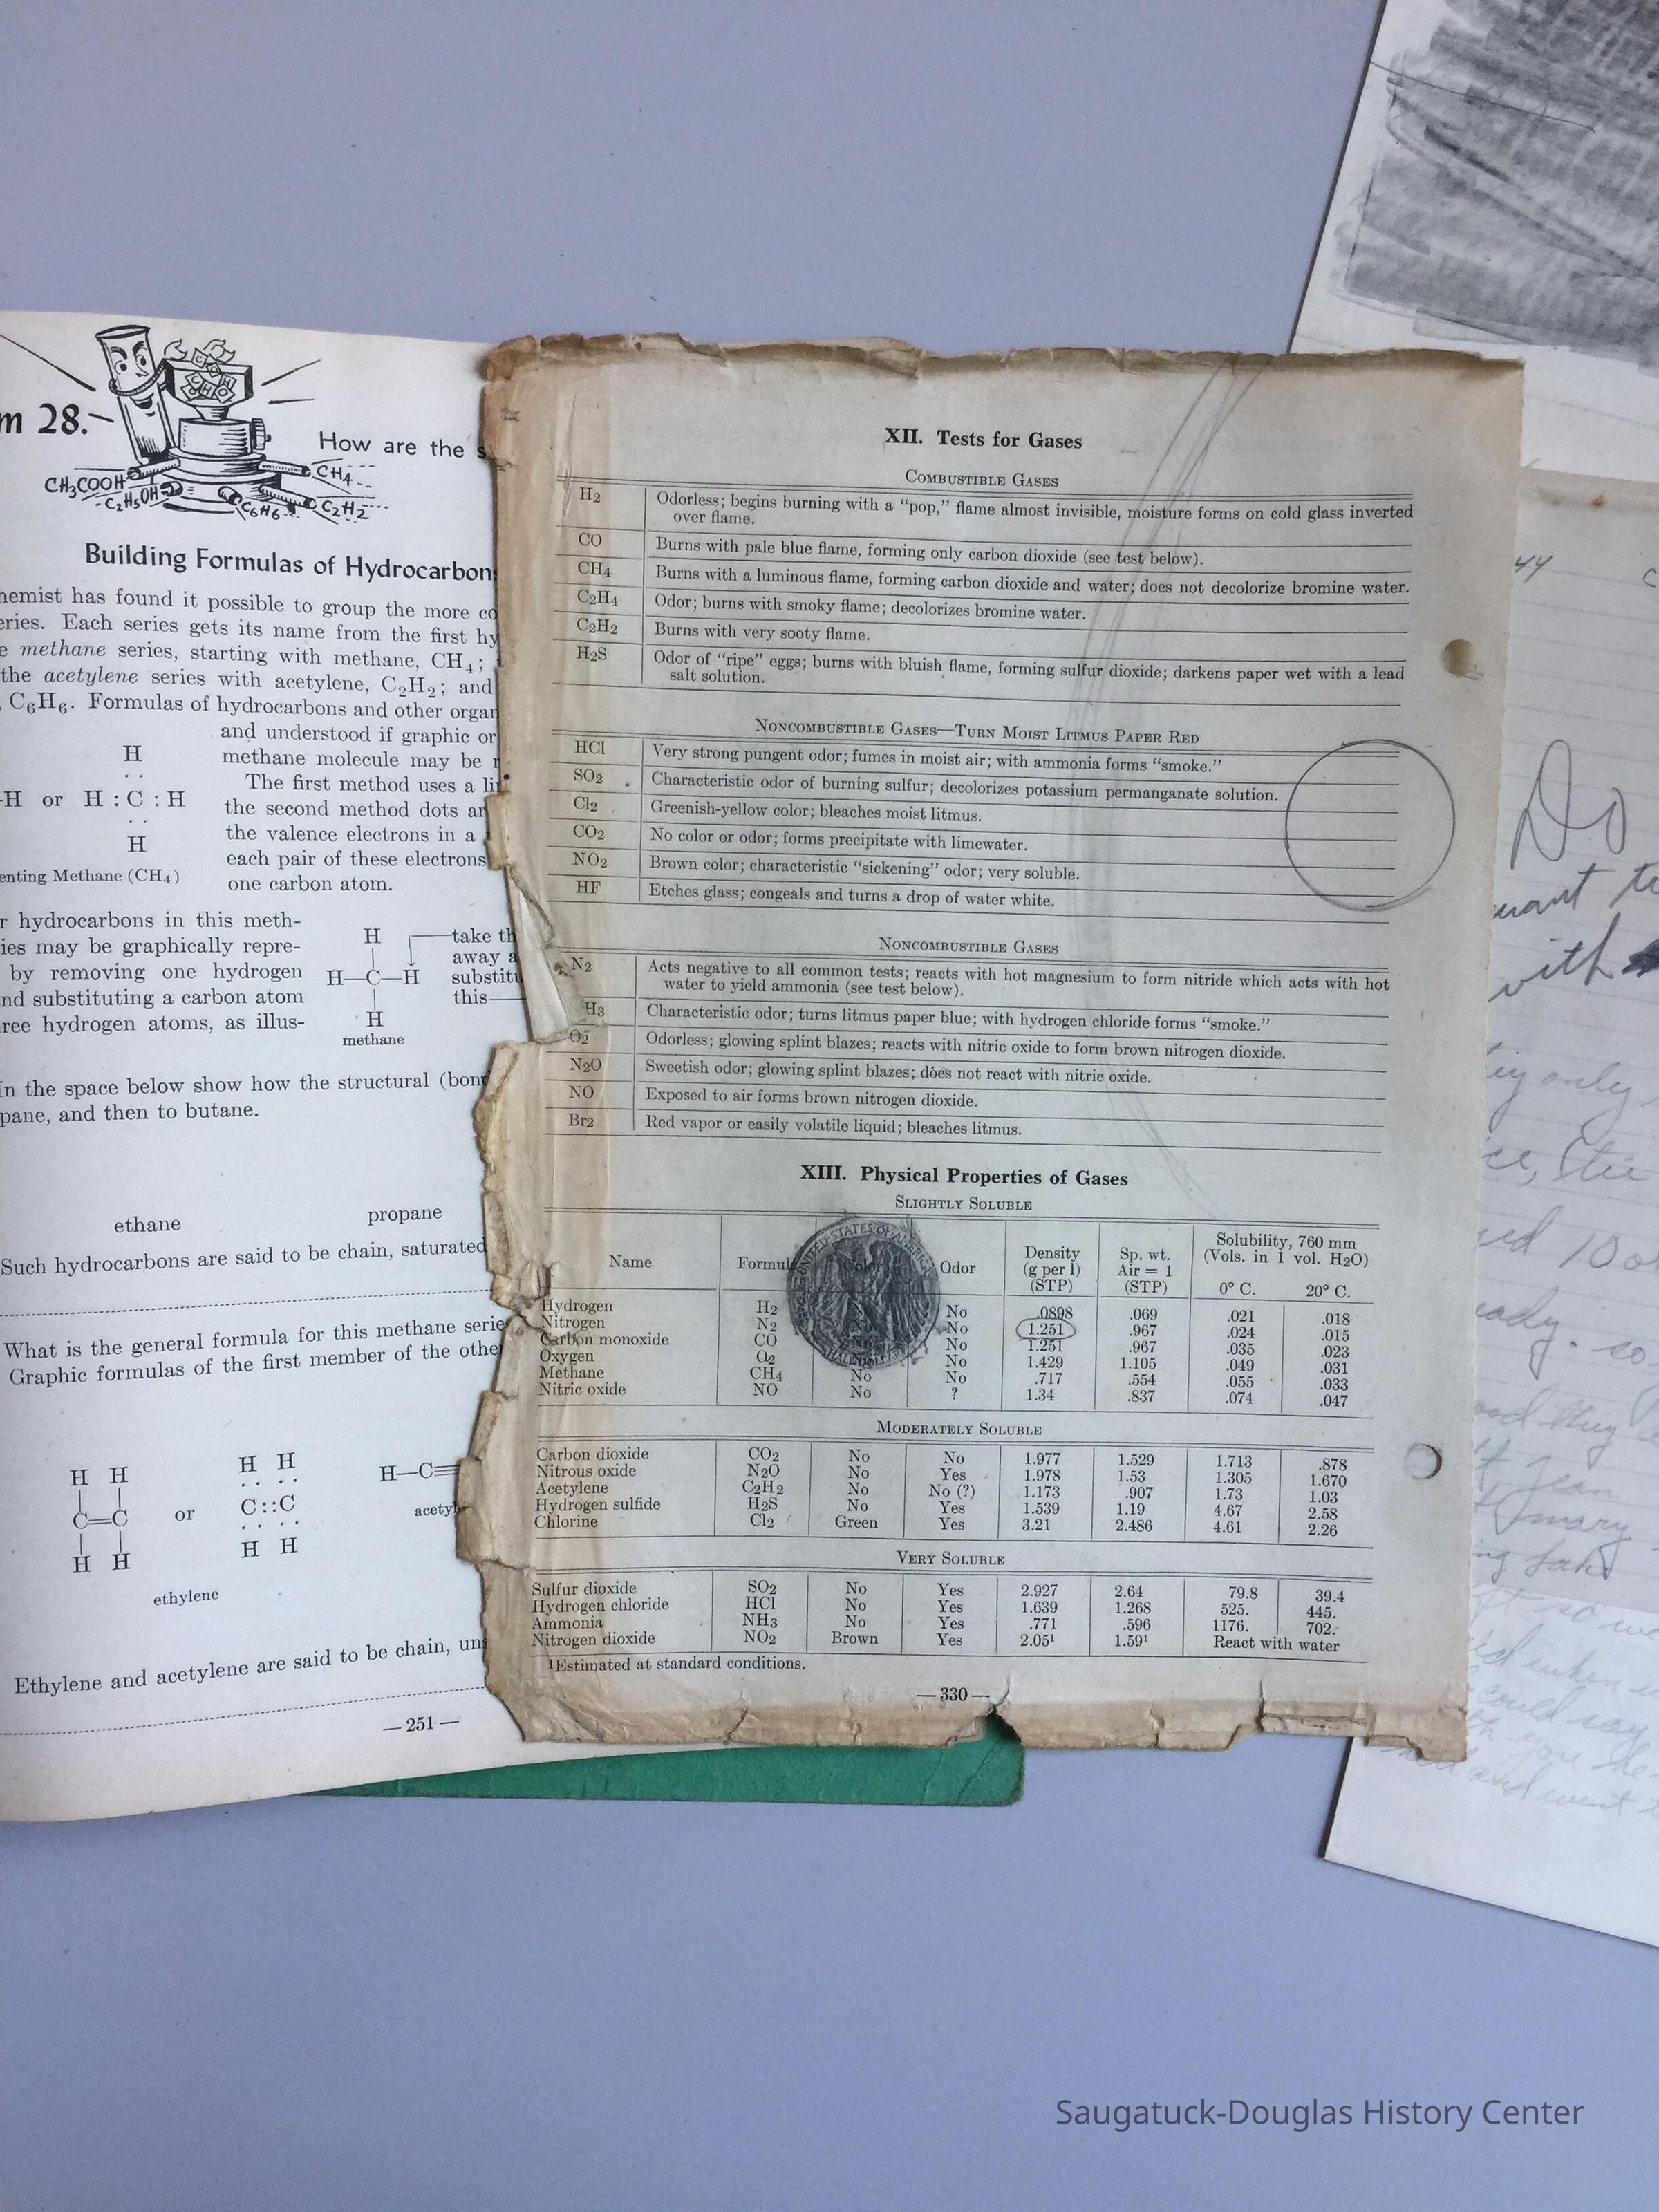 m 28.
How are the s
CH3COOH
C2H5OH
C6H6
C2H2
CH4
Building Formulas of Hydrocarbon
hemist has found it possible to group the more co
eries. Each series gets its name from the first hy
e methane series, starting with methane, CH4;
the acetylene series with acetylene, C2H2; and
, C6H6. Formulas of hydrocarbons and other organ
and understood if graphic or
methane molecule may be r
The first method uses a li
the second method dots ar
the valence electrons in a
each pair of these electrons
one carbon atom.
H
-H or H : C : H
H
enting Methane (CH4)
r hydrocarbons in this meth-
ies may be graphically repre-
by removing one hydrogen
nd substituting a carbon atom
ree hydrogen atoms, as illus-
H
H—C—H
H
methane
take th
away a
substitu
this—
In the space below show how the structural (bond
pane, and then to butane.
ethane propane
Such hydrocarbons are said to be chain, saturated
What is the general formula for this methane serie
Graphic formulas of the first member of the othe
H H
C=C
H H
or
H H
C::C
H H
ethylene
H—C≡
acety
Ethylene and acetylene are said to be chain, uns
—251—
XII. Tests for Gases
COMBUSTIBLE GASES
H2 Odorless; begins burning with a "pop," flame almost invisible, moisture forms on cold glass inverted
over flame.
CO Burns with pale blue flame, forming only carbon dioxide (see test below).
CH4 Burns with a luminous flame, forming carbon dioxide and water; does not decolorize bromine water.
C2H4 Odor; burns with smoky flame; decolorizes bromine water.
C2H2 Burns with very sooty flame.
H2S Odor of "ripe" eggs; burns with bluish flame, forming sulfur dioxide; darkens paper wet with a lead
salt solution.
NONCOMBUSTIBLE GASES—TURN MOIST LITMUS PAPER RED
HCl Very strong pungent odor; fumes in moist air; with ammonia forms "smoke."
SO2 Characteristic odor of burning sulfur; decolorizes potassium permanganate solution.
Cl2 Greenish-yellow color; bleaches moist litmus.
CO2 No color or odor; forms precipitate with limewater.
NO2 Brown color; characteristic "sickening" odor; very soluble.
HF Etches glass; congeals and turns a drop of water white.
NONCOMBUSTIBLE GASES
N2 Acts negative to all common tests; reacts with hot magnesium to form nitride which acts with hot
water to yield ammonia (see test below).
H3 Characteristic odor; turns litmus paper blue; with hydrogen chloride forms "smoke."
O2 Odorless; glowing splint blazes; reacts with nitric oxide to form brown nitrogen dioxide.
N2O Sweetish odor; glowing splint blazes; does not react with nitric oxide.
NO Exposed to air forms brown nitrogen dioxide.
Br2 Red vapor or easily volatile liquid; bleaches litmus.
XIII. Physical Properties of Gases
SLIGHTLY SOLUBLE
Name Formul Color Odor Density (g per l) (STP) Sp. wt. Air = 1 (STP) Solubility, 760 mm (Vols. in 1 vol. H2O) 0° C. 20° C.
UNITED STATES OF AMERICA
HALF DOLLAR
Hydrogen H2 No No .0898 .069 .021 .018
Nitrogen N2 No No 1.251 .967 .024 .015
Carbon monoxide CO No No 1.251 .967 .035 .023
Oxygen O2 No No 1.429 1.105 .049 .031
Methane CH4 No No .717 .554 .055 .033
Nitric oxide NO No ? 1.34 .837 .074 .047
MODERATELY SOLUBLE
Carbon dioxide CO2 No No 1.977 1.529 1.713 .878
Nitrous oxide N2O No Yes 1.978 1.53 1.305 1.670
Acetylene C2H2 No No (?) 1.173 .907 1.73 1.03
Hydrogen sulfide H2S No Yes 1.539 1.19 4.67 2.58
Chlorine Cl2 Green Yes 3.21 2.486 4.61 2.26
VERY SOLUBLE
Sulfur dioxide SO2 No Yes 2.927 2.64 79.8 39.4
Hydrogen chloride HCl No Yes 1.639 1.268 525. 445.
Ammonia NH3 No Yes .771 .596 1176. 702.
Nitrogen dioxide NO2 Brown Yes 2.05¹ 1.59¹ React with water
¹Estimated at standard conditions.
—330—
44 C
Do
want to
with
only
10
ady. so
jean
mary
when
could say
you she
and went t
Saugatuck-Douglas History Center